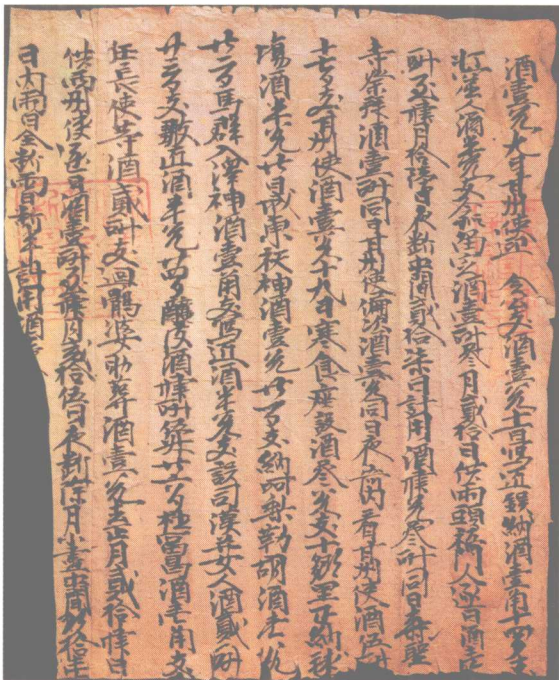 酒壹瓮九日甘州使迎令公支酒壹瓮十一日寫匠納酒壹角十四日支
生人酒半瓮支令狐酒壹㪷叁月貳拾日供兩頭門人逐日酒壹
㪷至肆月拾陸日夜斷中間貳拾柒日計用酒肆瓮叁㪷同日奉聖
寺祭拜酒壹㪷同日甘州使偏次酒壹瓮同日夜衙內看甘州使酒伍㪷
十七日支甘州使酒壹瓮十八日寒食座設酒叁瓮支十鄉里正納毬
場酒半瓮廿日城東祆神酒壹瓮廿一日支納呵梨勒胡酒壹瓮
廿二日馬群入澤神酒壹角支寫匠酒半瓮支設司女人酒貳㪷
廿三日支皺匠酒半瓮廿四日釀皮酒肆㪷廿六日酒壹角支
任長使等酒貳㪷支迴鶻婆助葬酒壹瓮去正月貳拾肆日
供西州使逐日酒壹㪷至肆月貳拾伍日夜斷除月小盡中間玖拾半
日內兩日全斷兩日斷半計用酒